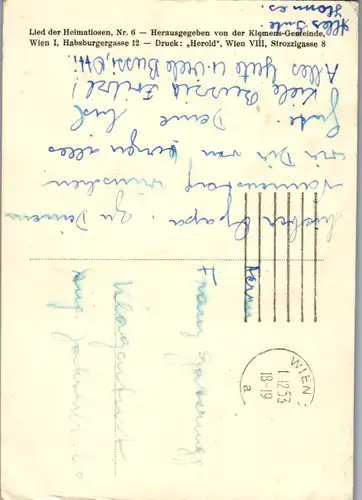 Lied der Heimatlosen, Nr. 6 — Herausgegeben von der Klemens-Gemeinde,
Wien I, Habsburgergasse 12 — Druck: „Herold“, Wien VIII, Strozzigasse 8
Lieber Opapa, zu Deinem
Namenstag wünschen
wir Dir von Herzen alles
Gute. Deine Lisl
Viele Bussi Fritzl!
Alles Gute u. viele Bussi, Otti
Alles Gute
Hannes.
Herrn
Franz
Klagenfurt
WIEN
1.12.53
18-19
a